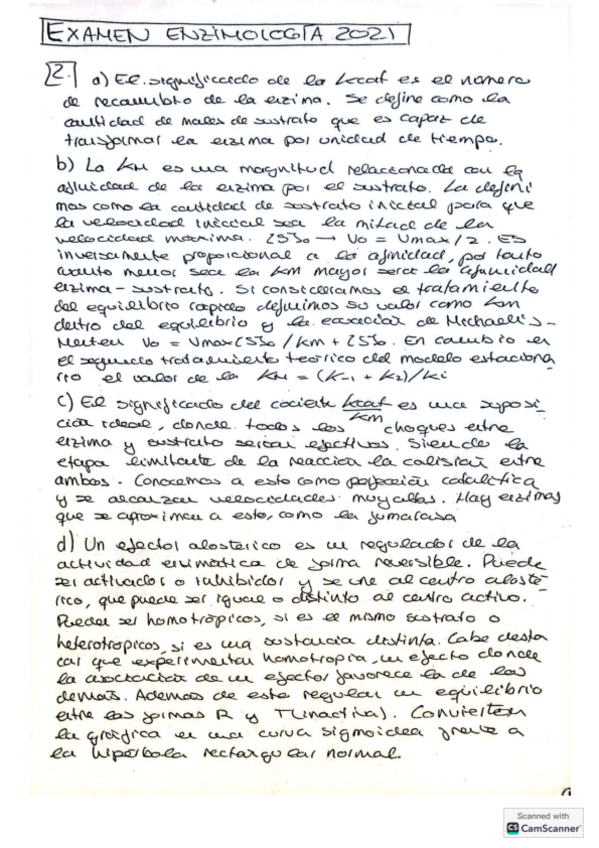 EXAMEN ENZIMOLOGÍA 2021
2. a) El significado de la kcat es el número
de recambio de la enzima. Se define como la
cantidad de moles de sustrato que es capaz de
transformar la enzima por unidad de tiempo.
b) La KM es una magnitud relacionada con la
afinidad de la enzima por el sustrato. La defini
mos como la cantidad de sustrato inicial para que
la velocidad inicial sea la mitad de la
velocidad máxima. [S]o → Vo = Vmax/2. Es
inversamente proporcional a la afinidad, por tanto
cuanto menor sea la KM mayor será la afinidad
enzima-sustrato. Si consideramos el tratamiento
del equilibrio rápido definimos su valor como
dentro del equilibrio y la ecuación de Michaelis-
Menten Vo = Vmax[S]o/KM + [S]o. En cambio en
el segundo tratamiento teórico del modelo estaciona
rio el valor de la KM = (K-1 + K2)/K1
c) El significado del cociente kcat/KM es una suposi-
ción ideal, donde todos los choques entre
enzima y sustrato serían efectivos. Siendo la
etapa limitante de la reacción la colisión entre
ambos. Conocemos a esto como perfección catalítica
y se alcanzan velocidades muy altas. Hay enzimas
que se aproximan a esto, como la fumarasa
d) Un efector alostérico es un regulador de la
actividad enzimática de forma reversible. Puede
ser activador o inhibidor y se une al centro alosté-
rico, que puede ser igual o distinto al centro activo.
Pueden ser homotrópicos, si es el mismo sustrato o
heterotrópicos, si es una sustancia distinta. Cabe desta
car que experimentan homotropía, un efecto donde
la asociación de un efector favorece la de los
demás. Además de esto regulan un equilibrio
entre las formas R y T(inactiva). Convierten
la gráfica en una curva sigmoidea frente a
la hipérbola rectangular normal.
Scanned with
CS CamScanner